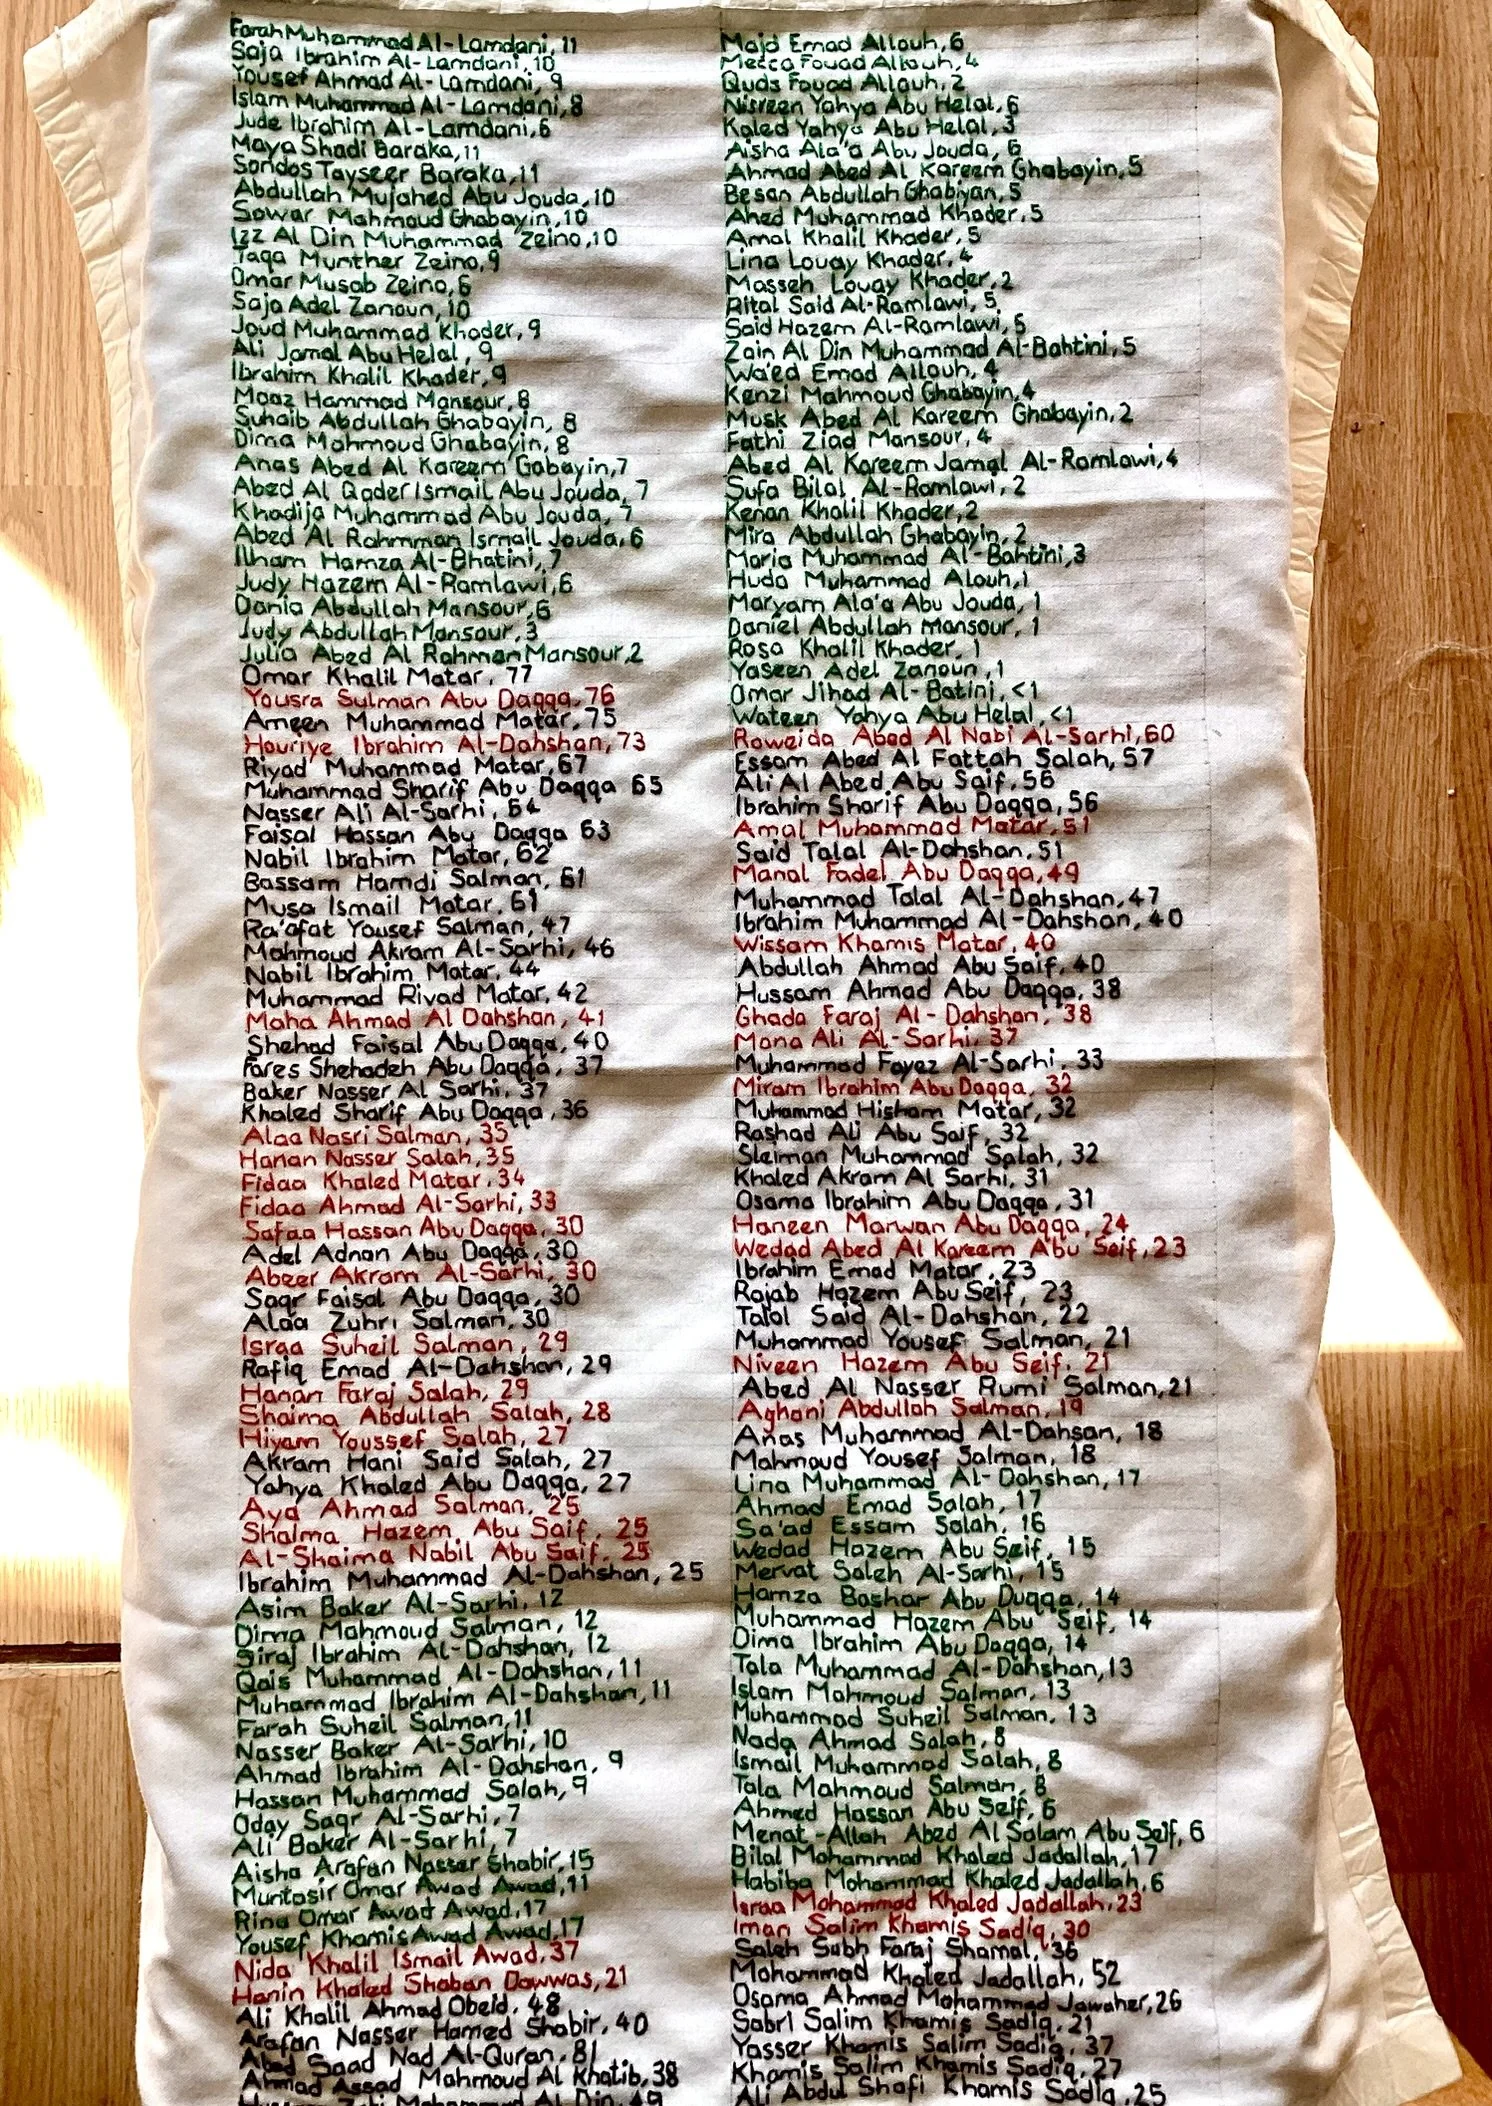 Farah Muhammad Al-Lamdani, 11
Saja Ibrahim Al-Lamdani, 10
Yousef Ahmad Al-Lamdani, 9
Islam Muhammad Al-Lamdani, 8
Jude Ibrahim Al-Lamdani, 6
Maya Shadi Baraka, 11
Sondos Tayseer Baraka, 11
Abdullah Mujahed Abu Jouda, 10
Sowar Mahmoud Ghabayin, 10
Izz Al Din Muhammad Zeino, 10
Taqa Munther Zeino, 9
Omar Musab Zeino, 6
Saja Adel Zanoun, 10
Joud Muhammad Khader, 9
Ali Jamal Abu Helal, 9
Ibrahim Khalil Khader, 9
Moaz Hammad Mansour, 8
Suhaib Abdullah Ghabayin, 8
Dima Mahmoud Ghabayin, 8
Anas Abed Al Kareem Gabayin, 7
Abed Al Qader Ismail Abu Jouda, 7
Khadija Muhammad Abu Jouda, 7
Abed Al Rahmman Ismail Jouda, 6
Ilham Hamza Al-Bhatini, 7
Judy Hazem Al-Ramlawi, 6
Dania Abdullah Mansour, 6
Judy Abdullah Mansour, 3
Julia Abed Al Rahman Mansour, 2
Omar Khalil Matar, 77
Yousra Sulman Abu Daqqa, 76
Ameen Muhammad Matar, 75
Houriye Ibrahim Al-Dahshan, 73
Riyad Muhammad Matar, 67
Muhammad Sharif Abu Daqqa 65
Nasser Ali Al-Sarhi, 64
Faisal Hassan Abu Daqqa 63
Nabil Ibrahim Matar, 62
Bassam Hamdi Salman, 61
Musa Ismail Matar, 61
Ra'afat Yousef Salman, 47
Mahmoud Akram Al-Sarhi, 46
Nabil Ibrahim Matar, 44
Muhammad Riyad Matar, 42
Maha Ahmad Al Dahshan, 41
Shehad Faisal Abu Daqqa, 40
Fares Shehadeh Abu Daqqa, 37
Baker Nasser Al Sarhi, 37
Khaled Sharif Abu Daqqa, 36
Alaa Nasri Salman, 35
Hanan Nasser Salah, 35
Fidaa Khaled Matar, 34
Fidaa Ahmad Al-Sarhi, 33
Safaa Hassan Abu Daqqa, 30
Adel Adnan Abu Daqqa, 30
Abeer Akram Al-Sarhi, 30
Saqr Faisal Abu Daqqa, 30
Alaa Zuhri Salman, 30
Israa Suheil Salman, 29
Rafiq Emad Al-Dahshan, 29
Hanan Faraj Salah, 29
Shaima Abdullah Salah, 28
Hiyam Youssef Salah, 27
Akram Hani Said Salah, 27
Yahya Khaled Abu Daqqa, 27
Aya Ahmad Salman, 25
Shaima Hazem Abu Saif, 25
Al-Shaima Nabil Abu Saif, 25
Ibrahim Muhammad Al-Dahshan, 25
Asim Baker Al-Sarhi, 12
Dima Mahmoud Salman, 12
Siraj Ibrahim Al-Dahshan, 12
Qais Muhammad Al-Dahshan, 11
Muhammad Ibrahim Al-Dahshan, 11
Farah Suheil Salman, 11
Nasser Baker Al-Sarhi, 10
Ahmad Ibrahim Al-Dahshan, 9
Hassan Muhammad Salah, 9
Oday Saqr Al-Sarhi, 7
Ali Baker Al-Sarhi, 7
Aisha Arafan Nasser Shabir, 15
Muntasir Omar Awad Awad, 11
Rina Omar Awad Awad, 17
Yousef Khamis Awad Awad, 17
Nida Khalil Ismail Awad, 37
Hanin Khaled Shaban Dawwas, 21
Ali Khalil Ahmad Obeid, 48
Arafan Nasser Hamed Shabir, 40
Abed Saad Nad Al-Quran, 81
Ahmad Assad Mahmoud Al Khatib, 38
Mohamed Al Din, 49
Majd Emad Allouh, 6
Mecca Fouad Allouh, 4
Quds Fouad Allouh, 2
Nisreen Yahya Abu Helal, 6
Kaled Yahya Abu Helal, 3
Aisha Ala'a Abu Jouda, 6
Ahmad Abed Al Kareem Ghabayin, 5
Besan Abdullah Ghabiyan, 5
Ahed Muhammad Khader, 5
Amal Khalil Khader, 5
Lina Louay Khader, 4
Masseh Louay Khader, 2
Rital Said Al-Ramlawi, 5
Said Hazem Al-Ramlawi, 5
Zain Al Din Muhammad Al-Bahtini, 5
Wa'ed Emad Allouh, 4
Kenzi Mahmoud Ghabayin, 4
Musk Abed Al Kareem Ghabayin, 2
Fathi Ziad Mansour, 4
Abed Al Kareem Jamal Al-Ramlawi, 4
Sufa Bilal Al-Ramlawi, 2
Kenan Khalil Khader, 2
Mira Abdullah Ghabayin, 2
Maria Muhammad Al-Bahtini, 3
Huda Muhammad Alouh, 1
Maryam Ala'a Abu Jouda, 1
Daniel Abdullah Mansour, 1
Rosa Khalil Khader, 1
Yaseen Adel Zanoun, 1
Omar Jihad Al-Batini, <1
Wateen Yahya Abu Helal, <1
Roweida Abed Al Nabi Al-Sarhi, 60
Essam Abed Al Fattah Salah, 57
Ali Al Abed Abu Saif, 56
Ibrahim Sharif Abu Daqqa, 56
Amal Muhammad Matar, 51
Said Talal Al-Dahshan, 51
Manal Fadel Abu Daqqa, 49
Muhammad Talal Al-Dahshan, 47
Ibrahim Muhammad Al-Dahshan, 40
Wissam Khamis Matar, 40
Abdullah Ahmad Abu Saif, 40
Hussam Ahmad Abu Daqqa, 38
Ghada Faraj Al-Dahshan, 38
Mona Ali Al-Sarhi, 37
Muhammad Fayez Al-Sarhi, 33
Miram Ibrahim Abu Daqqa, 32
Muhammad Hisham Matar, 32
Rashad Ali Abu Saif, 32
Sleiman Muhammad Salah, 32
Khaled Akram Al Sarhi, 31
Osama Ibrahim Abu Daqqa, 31
Haneen Marwan Abu Daqqa, 24
Wedad Abed Al Kareem Abu Seif, 23
Ibrahim Emad Matar, 23
Rajab Hazem Abu Seif, 23
Talal Said Al-Dahshan, 22
Muhammad Yousef Salman, 21
Niveen Hazem Abu Seif, 21
Abed Al Nasser Rumi Salman, 21
Aghani Abdullah Salman, 19
Anas Muhammad Al-Dahsan, 18
Mahmoud Yousef Salman, 18
Lina Muhammad Al-Dahshan, 17
Ahmad Emad Salah, 17
Sa'ad Essam Salah, 16
Wedad Hazem Abu Seif, 15
Mervat Saleh Al-Sarhi, 15
Hamza Bashar Abu Duqqa, 14
Muhammad Hazem Abu Seif, 14
Dima Ibrahim Abu Daqqa, 14
Tala Muhammad Al-Dahshan, 13
Islam Mahmoud Salman, 13
Muhammad Suheil Salman, 13
Nada Ahmad Salah, 8
Ismail Muhammad Salah, 8
Tala Mahmoud Salman, 8
Ahmed Hassan Abu Seif, 6
Menat-Allah Abed Al Salam Abu Seif, 6
Bilal Mohammad Khaled Jadallah, 17
Habiba Mohammad Khaled Jadallah, 6
Israa Mohammad Khaled Jadallah, 23
Iman Salim Khamis Sadiq, 30
Saleh Subh Faraj Shamal, 36
Mohammad Khaled Jadallah, 52
Osama Ahmad Mohammad Jawaher, 26
Sabri Salim Khamis Sadiq, 21
Yasser Khamis Salim Sadiq, 37
Khamis Salim Khamis Sadiq, 27
Ali Abdul Shafi Khamis Sadiq, 25